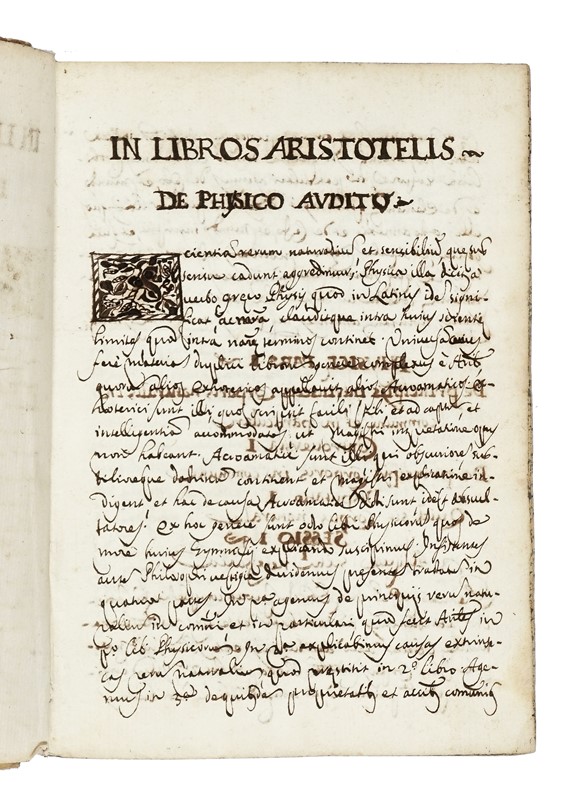 IN LIBROS ARISTOTELIS
DE PHYSICO AVDITV
scientiā rerum naturaliū et sensibiliū que sub
sensu cadunt aggredimur: Physica illa dicitur
verbo greco Physis quod in Latinis idē signi-
ficat ac natura, clauditque intra huius scientie
limites quod intra nature terminos continet. Universā
fere materiā duplici libroru genere complexus ē Arist.
quorum alios exotericos appellavit alios Acroamaticos
exoterici sunt illi quos scripsit facili stilo et ad captum et
intelligentiā accommodatos ut magistri interpretatione opus
non habeant. Acroamatici sunt illi qui obscuriores sub-
tilioresque doctrinas continent et magistri explicatione in-
digent et hac de causa Acroamatici dicti sunt idest auscul-
tatores. ex hoc genere sunt octo libri Physicorū quos de
more huius Gymnasij explicandos suscipimus. Insistentes
autē Philosophi vestigijs dividemus presentē tractatū in
quatuor partes, et agemus de principijs rerū natu-
raliū in comuni et in particulari quod fecit Arist. in
po lib. Physicorū. In 2a explicabimus causas extrinse-
cas rerū naturaliū quod prestitit in 2o libro Age-
mus in 3a de quibusdā proprietatibus et accidentibus comunibus